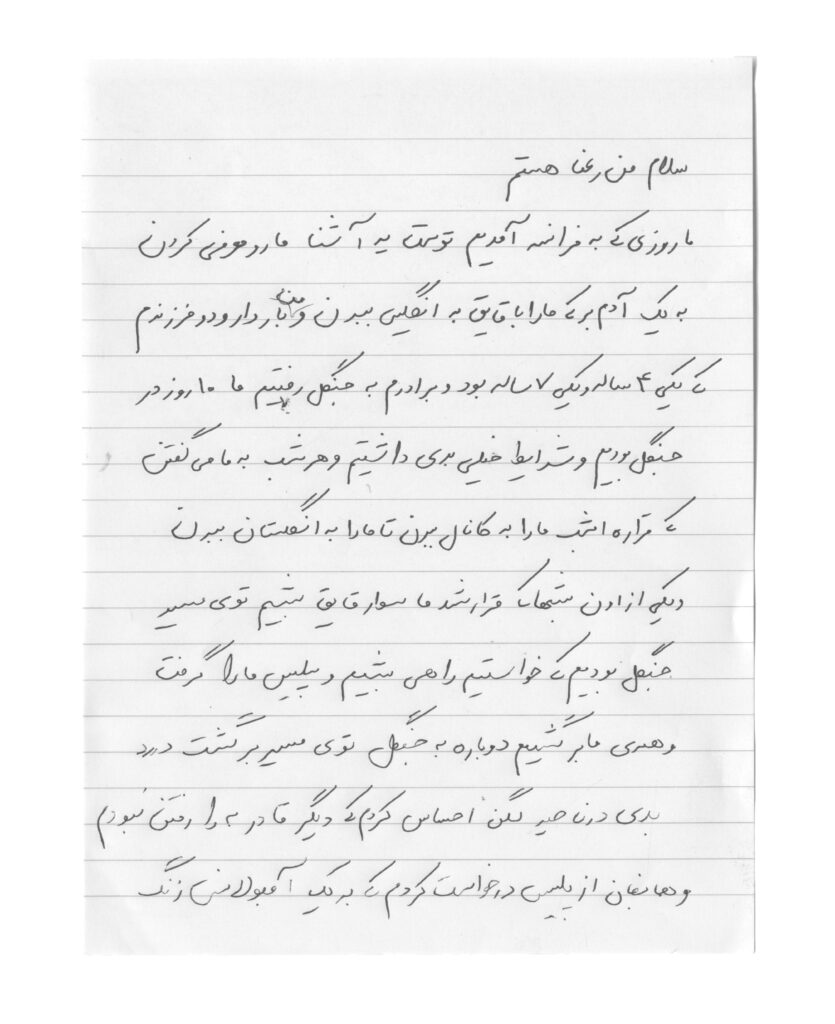 سلام من رعنا هستم
ما روزی که به فرانسه آمدیم توست یه آشنا مارو معرفی کردن
به یک آدم بر که مارا با قایق به انگلیس ببرن و من باردار و دو فرزندم
که یکی ۴ ساله و یکی ۷ ساله بود و برادرم به جنگل رفتیم ما ۱۰ روز در
جنگل بودیم و شرایط خیلی بدی داشتیم و هر شب به ما می گفتن
که قراره امشب مارا به کانال ببرن تا مارا به انگلستان ببرن
و یکی از اون شبها که قرار شد ما سوار قایق بشیم توی مسیر
جنگل بودیم که خواستیم راهی بشیم و پلیس مارا گرفت
و همه‌ی ما برگشتیم دوباره به جنگل توی مسیر برگشت درد
بدی در ناحیه لگن احساس کردم که دیگر قادر به را رفتن نبودم
و همانجان از پلیس درخواست کردم که به یک آمبولانس زنگ